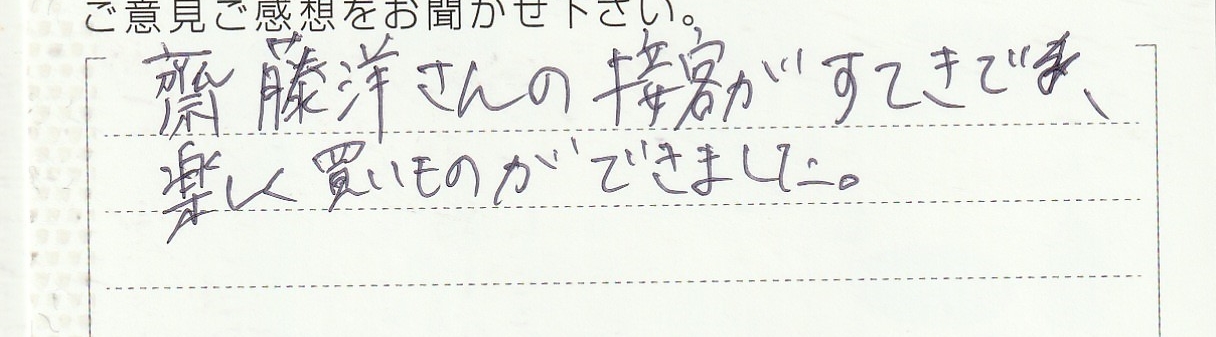 ご意見ご感想をお聞かせ下さい。
齋藤洋さんの接客がすてきで、
楽しく買いものができました。